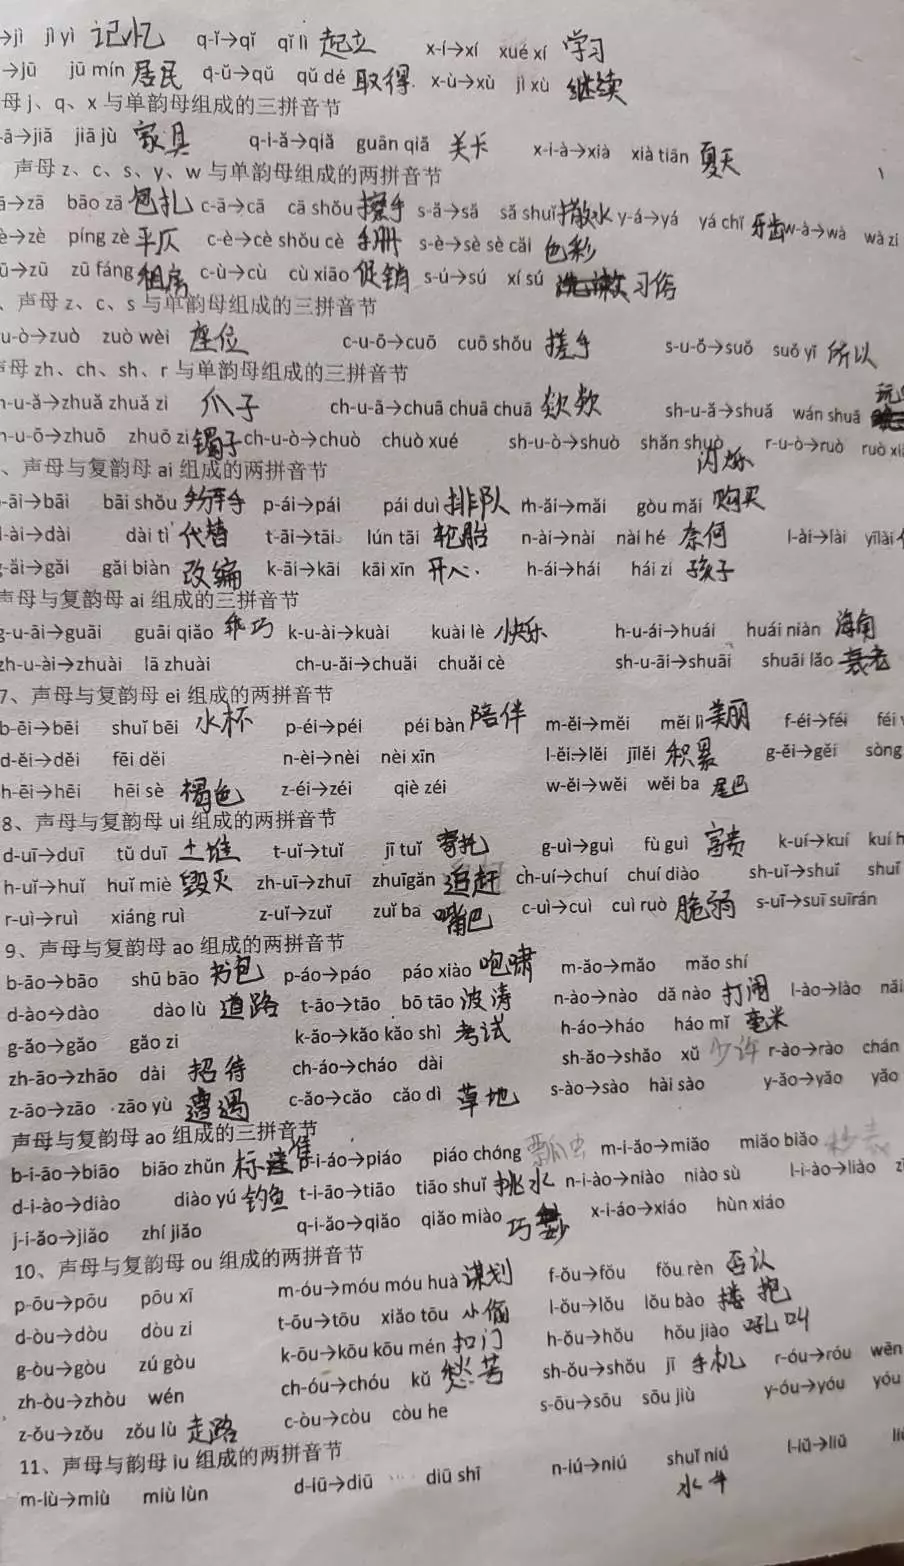 →jì jì yì 记忆 q-ǐ→qǐ qǐ lì 起立 x-í→xí xué xí 学习
→jū jū mín 居民 q-ǔ→qǔ qǔ dé 取得 x-ù→xù jì xù 继续
母 j、q、x 与单韵母组成的三拼音节
-ā→jiā jiā jù 家具 q-i-ǎ→qiǎ guān qiǎ 关卡 x-i-à→xià xià tiān 夏天
声母 z、c、s、y、w 与单韵母组成的两拼音节
ā→zā bāo zā 包扎 c-ā→cā cā shǒu 擦手 s-ǎ→sǎ sǎ shuǐ 撒水 y-á→yá yá chǐ 牙齿 w-à→wà wà zi
è→zè píng zè 平仄 c-è→cè shǒu cè 手册 s-è→sè sè cǎi 色彩
ū→zū zū fáng 租房 c-ù→cù cù xiāo 促销 s-ú→sú xí sú 习俗
、声母 z、c、s 与单韵母组成的三拼音节
u-ò→zuò zuò wèi 座位 c-u-ō→cuō cuō shǒu 搓手 s-u-ǒ→suǒ suǒ yǐ 所以
声母 zh、ch、sh、r 与单韵母组成的三拼音节
h-u-ǎ→zhuǎ zhuǎ zi 爪子 ch-u-ā→chuā chuā chuā 欻欻 sh-u-ǎ→shuǎ wán shuǎ 玩
h-u-ō→zhuō zhuō zi 镯子 ch-u-ò→chuò chuò xué sh-u-ò→shuò shǎn shuò 闪烁 r-u-ò→ruò ruò xi
、声母与复韵母 ai 组成的两拼音节
-āi→bāi bāi shǒu 掰手 p-ái→pái pái duì 排队 m-ǎi→mǎi gòu mǎi 购买
-ài→dài dài tì 代替 t-āi→tāi lún tāi 轮胎 n-ài→nài nài hé 奈何 l-ài→lài yīlài
g-ǎi→gǎi gǎi biàn 改编 k-āi→kāi kāi xīn 开心 h-ái→hái hái zi 孩子
声母与复韵母 ai 组成的三拼音节
g-u-āi→guāi guāi qiǎo 乖巧 k-u-ài→kuài kuài lè 快乐 h-u-ái→huái huái niàn
zh-u-ài→zhuài lā zhuài ch-u-ǎi→chuǎi chuǎi cè sh-u-āi→shuāi shuāi lǎo 衰老
7、声母与复韵母 ei 组成的两拼音节
b-ēi→bēi shuǐ bēi 水杯 p-éi→péi péi bàn 陪伴 m-ěi→měi měi lì 美丽 f-éi→féi féi
d-ěi→děi fēi děi n-èi→nèi nèi xīn l-ěi→lěi jīlěi 积累 g-ěi→gěi sòng
h-ēi→hēi hēi sè 褐色 z-éi→zéi qiè zéi w-ěi→wěi wěi ba 尾巴
8、声母与复韵母 ui 组成的两拼音节
d-uī→duī tǔ duī 土堆 t-uǐ→tuǐ jī tuǐ 寄托 g-uì→guì fù guì 富贵 k-uí→kuí kuí h
h-uǐ→huǐ huǐ miè 毁灭 zh-uī→zhuī zhuīgǎn 追赶 ch-uí→chuí chuí diào sh-uǐ→shuǐ shuǐ
r-uì→ruì xiáng ruì z-uǐ→zuǐ zuǐ ba 嘴巴 c-uì→cuì cuì ruò 脆弱 s-uī→suī suīrán
9、声母与复韵母 ao 组成的两拼音节
b-āo→bāo shū bāo 书包 p-áo→páo páo xiào 咆啸 m-ǎo→mǎo mǎo shí
d-ào→dào dào lù 道路 t-āo→tāo bō tāo 波涛 n-ào→nào dǎ nào 打闹 l-ào→lào nǎi
g-ǎo→gǎo gǎo zi k-ǎo→kǎo kǎo shì 考试 h-áo→háo háo mǐ 毫米
zh-āo→zhāo dài 招待 ch-áo→cháo dài sh-ǎo→shǎo xǔ 少许 r-ào→rào chán
z-āo→zāo zāo yù 遭遇 c-ǎo→cǎo cǎo dì 草地 s-ào→sào hài sào y-ǎo→yǎo yǎo
声母与复韵母 ao 组成的三拼音节
b-i-āo→biāo biāo zhǔn 标准 p-i-áo→piáo piáo chóng 瓢虫 m-i-ǎo→miǎo miǎo biǎo 秒表
d-i-ào→diào diào yú 钓鱼 t-i-āo→tiāo tiāo shuǐ 挑水 n-i-ào→niào niào sù l-i-ào→liào
j-i-ǎo→jiǎo zhí jiǎo q-i-ǎo→qiǎo qiǎo miào 巧妙 x-i-áo→xiáo hùn xiáo
10、声母与复韵母 ou 组成的两拼音节
p-ōu→pōu pōu xī m-óu→móu móu huà 谋划 f-ǒu→fǒu fǒu rèn 否认
d-òu→dòu dòu zi t-ōu→tōu xiǎo tōu 小偷 l-ǒu→lǒu lǒu bào 搂抱
g-òu→gòu zú gòu k-ōu→kōu kōu mén 扣门 h-ǒu→hǒu hǒu jiào 吼叫
zh-òu→zhòu wén ch-óu→chóu kǔ 愁苦 sh-ǒu→shǒu jī 手机 r-óu→róu wēn
z-ǒu→zǒu zǒu lù 走路 c-òu→còu còu he s-ōu→sōu sōu jiù y-óu→yóu yóu
11、声母与韵母 iu 组成的两拼音节
m-iù→miù miù lùn d-iū→diū diū shī n-iú→niú shuǐ niú 水牛 l-iū→liū